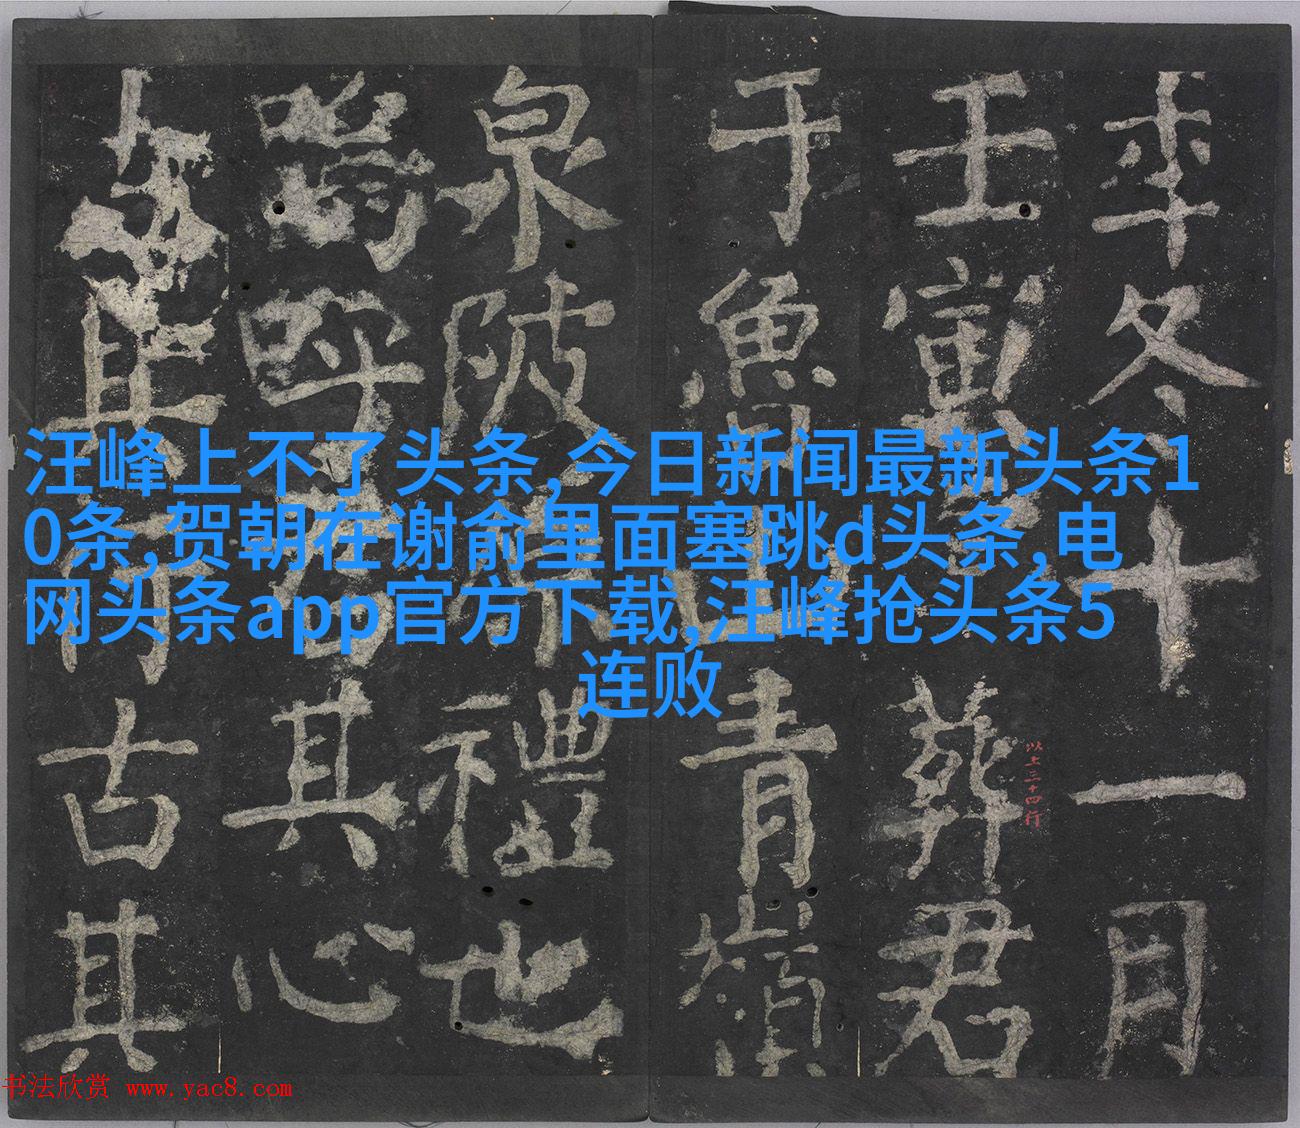 汪峰上不了头条,今日新闻最新头条1
0条,贺朝在谢俞里面塞跳d头条,电
网头条app官方下载,汪峰抢头条5
连败
年冬十一月
壬寅葬君
于魚山青嶺
泉陂禮也
嗚呼其心
其古其
以上三十四行
书法欣赏 www.yac8.com